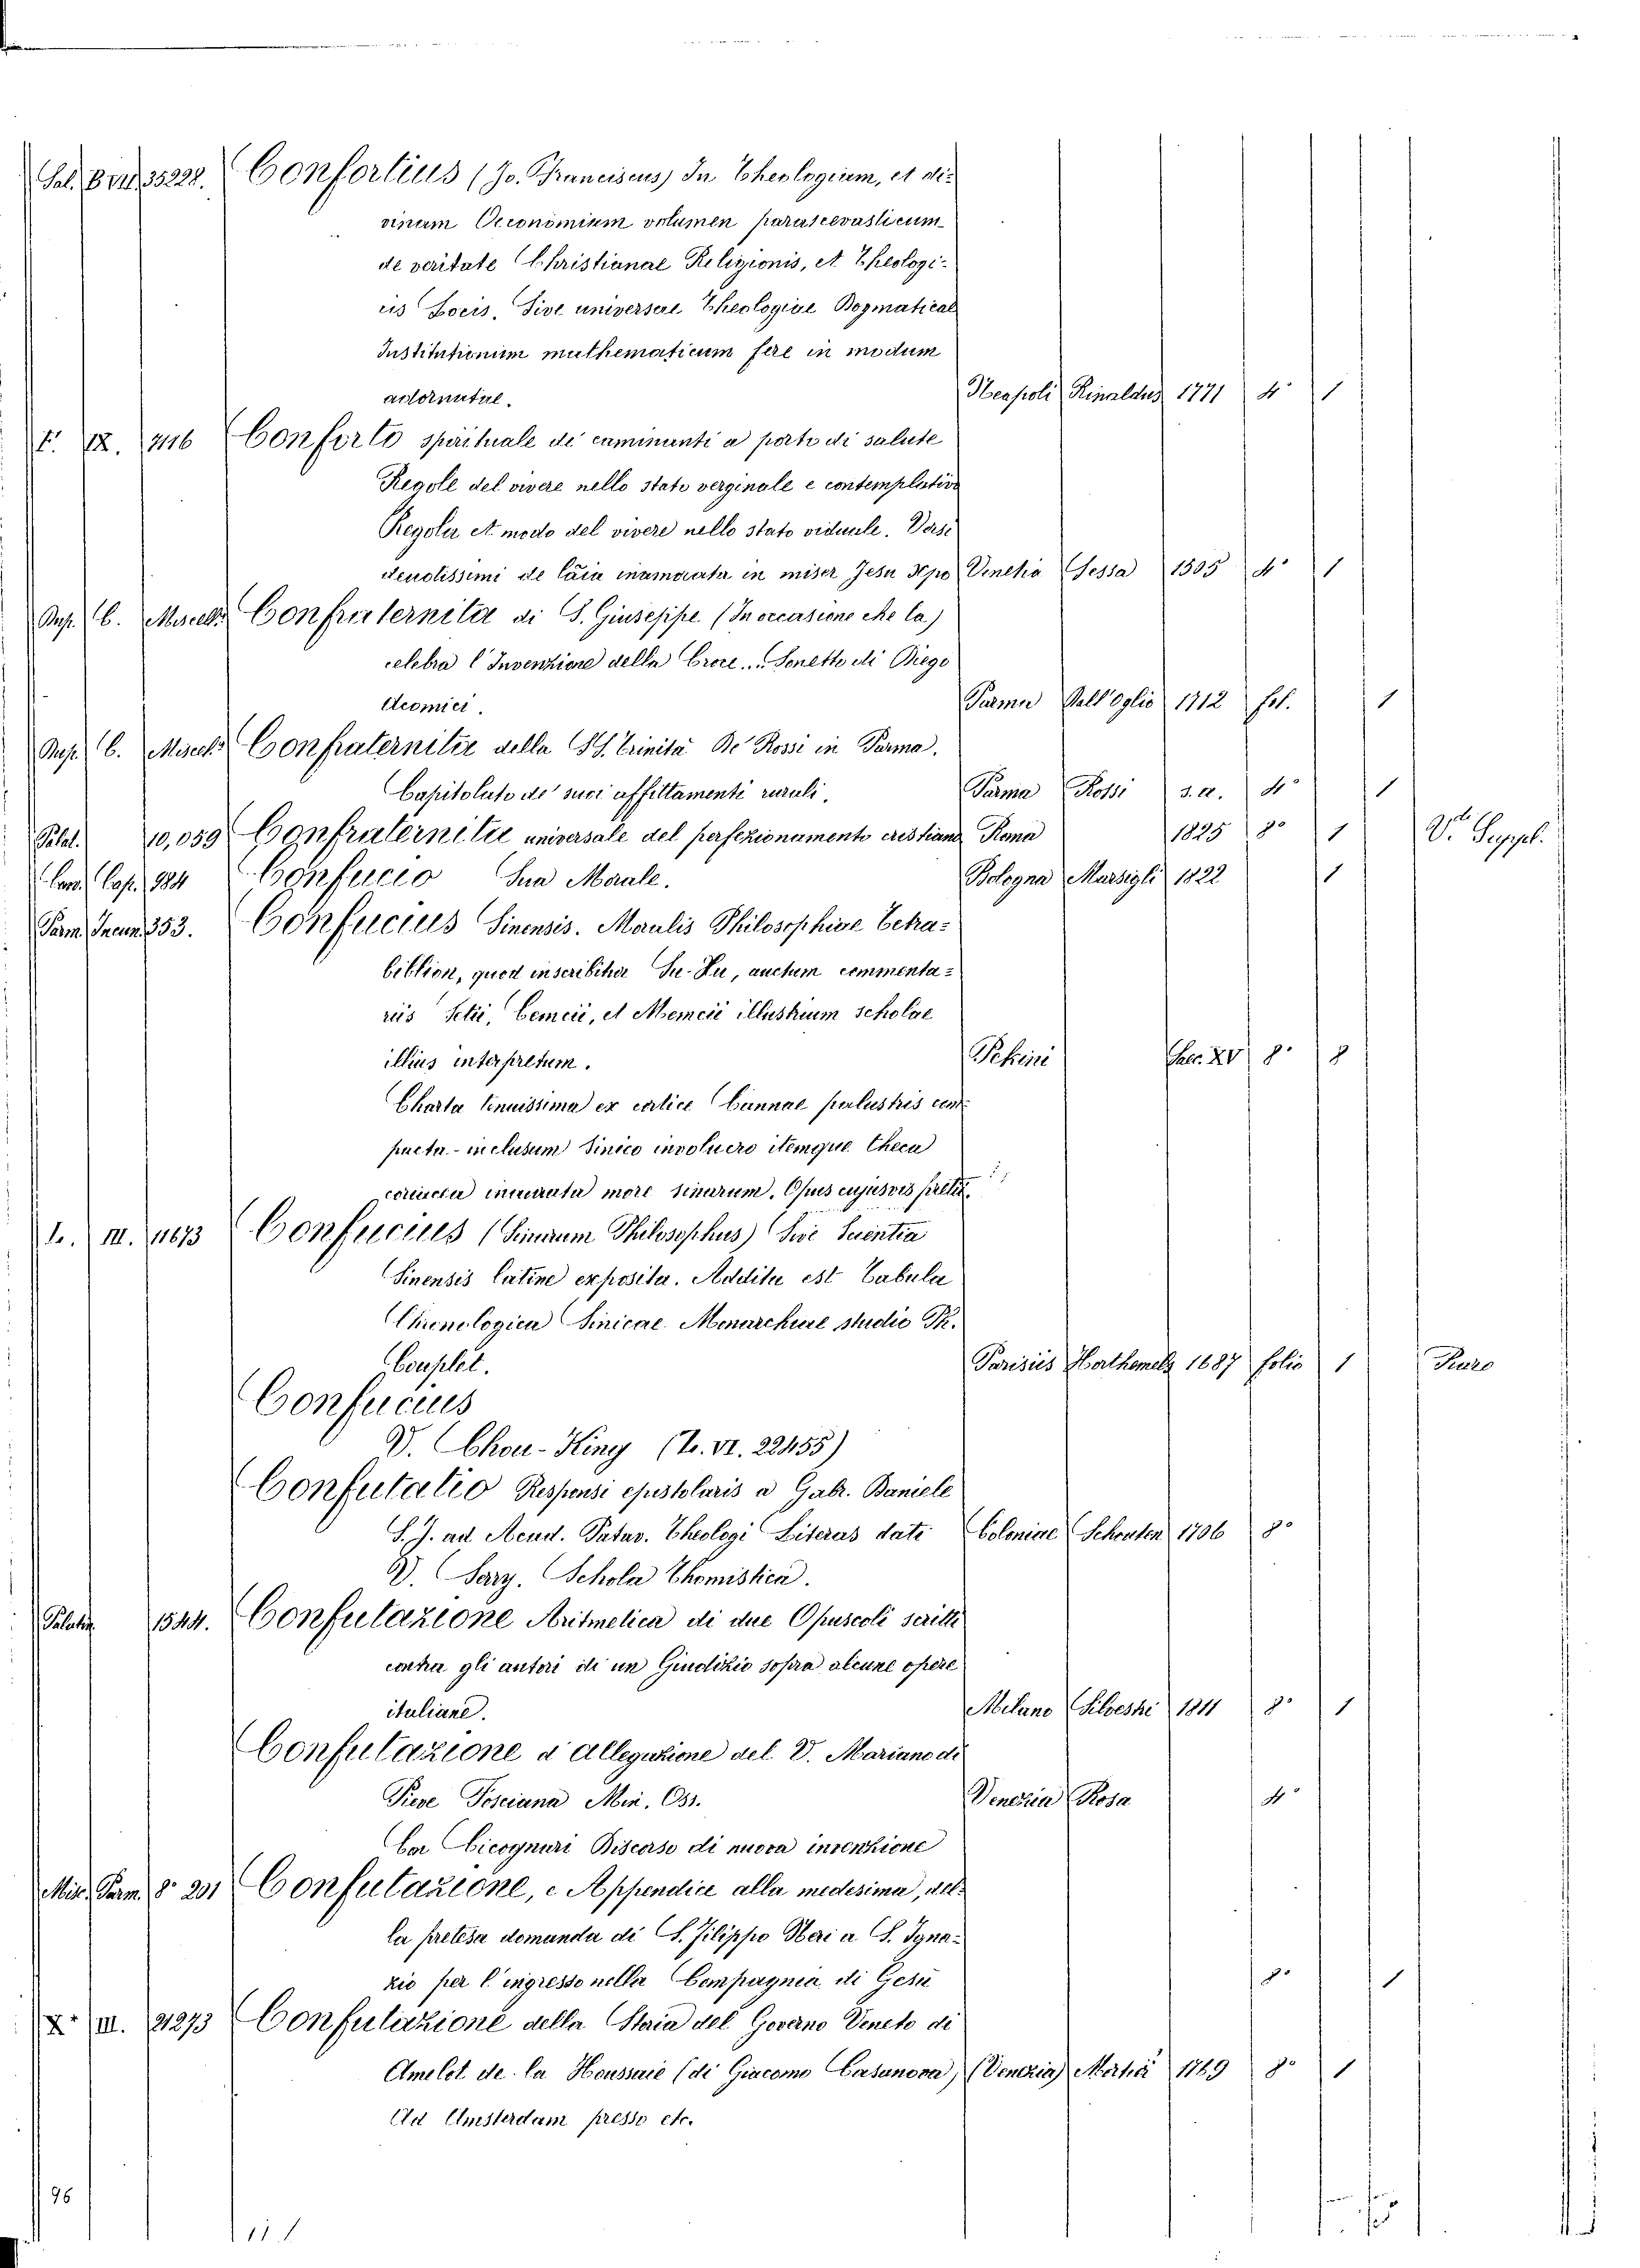 Sal. B VII. 35228. Confortius (Jo. Franciscus) In Theologium, et di-
vinam Oeconomiam volumen parasceuasticum
de veritate Christianae Religionis, et Theologi-
cis Locis, Sive universae Theologiae Dogmaticae
Institutionum mathematicum fere in modum
adornatae. Neapoli Rinaldus 1771 4° 1
F. IX. 7116 Conforto spirituale de caminanti a porto di salute
Regole del vivere nello stato verginale e contemplativo
Regola et modo del vivere nello stato viduale. Versi
devotissimi de laia inamorata in miser Jesu Xpo Venetia Sessa 1505 4° 1
Asp. C. Miscell. Confraternita di S. Giuseppe (In occasione che la)
celebra l'Invenzione della Croce... Sonetto di Diego
Acomici. Parma Dall'Oglio 1712 fol. 1
Asp. C. Miscell. Confraternita della SS. Trinità De' Rossi in Parma.
Capitolato de' suoi affittamenti rurali. Parma Rossi s.a. 4° 1
Palat. 10,059 Confraternita universale del perfezionamento cristiano Roma 1825 8° 1 V. Suppl.
Cap. 984 Confucio Sua Morale. Bologna Marsigli 1822 1
Parm. Incun. 353. Confucius Sinensis. Moralis Philosophiae Tetra-
biblion, quod inscribitur Su-Xu, auctum commenta-
riis Setii, Cemcii, et Memcii illustrium scholae
illius interpretum. Pekini Saec. XV 8° 8
Charta tenuissima ex cortice Cannae palustris com-
pacta - inclusum Sinico involucro itemque theca
coriacea inaurata more sinarum. Opus cujusvis pretii.
L. III. 11673 Confucius (Sinarum Philosophus) Sive Scientia
Sinensis latine exposita. Addita est Tabula
Chronologica Sinicae Monarchiae studio Ph.
Couplet. Parisiis Horthemels 1687 folio 1 Raro
Confucius
V. Chou-King (L. VI. 22455)
Confutatio Responsi epistolaris a Gabr. Daniele
S. J. ad Acad. Patav. Theologi Literas dati Coloniae Schouten 1706 8°
V. Sary. Schola Thomistica.
Palatin. 1544. Confutazione Aritmetica di due Opuscoli scritti
contra gli autori di un Giudizio sopra alcune opere
italiane. Milano Silvestri 1811 8° 1
Confutazione d'Allegazione del V. Mariano di
Pieve Tosciana Min. Oss. Venezia Rosa 4°
Cicognari Discorso di nuova invenzione
Misc. Parm. 8° 201 Confutazione, e Appendice alla medesima, del-
la pretesa domanda di S. Filippo Neri a S. Igna-
zio per l'ingresso nella Compagnia di Gesù 8° 1
X* III. 21273 Confutazione della Storia del Governo Veneto di
Amelot de la Houssaie (di Giacomo Casanova) (Venezia) 1769 8° 1
Ad Amsterdam presso etc.
96